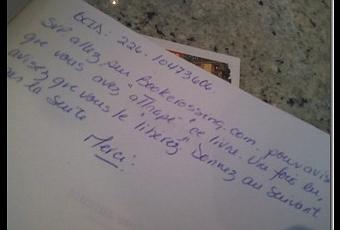 BCID: 226-10473606
SVP allez sur Bookcrossing.com pour avis
que vous avez "attrapé" ce livre. Une fois lu,
avisez que vous le "libérez". Donnez au suivant
par la suite
Merci!